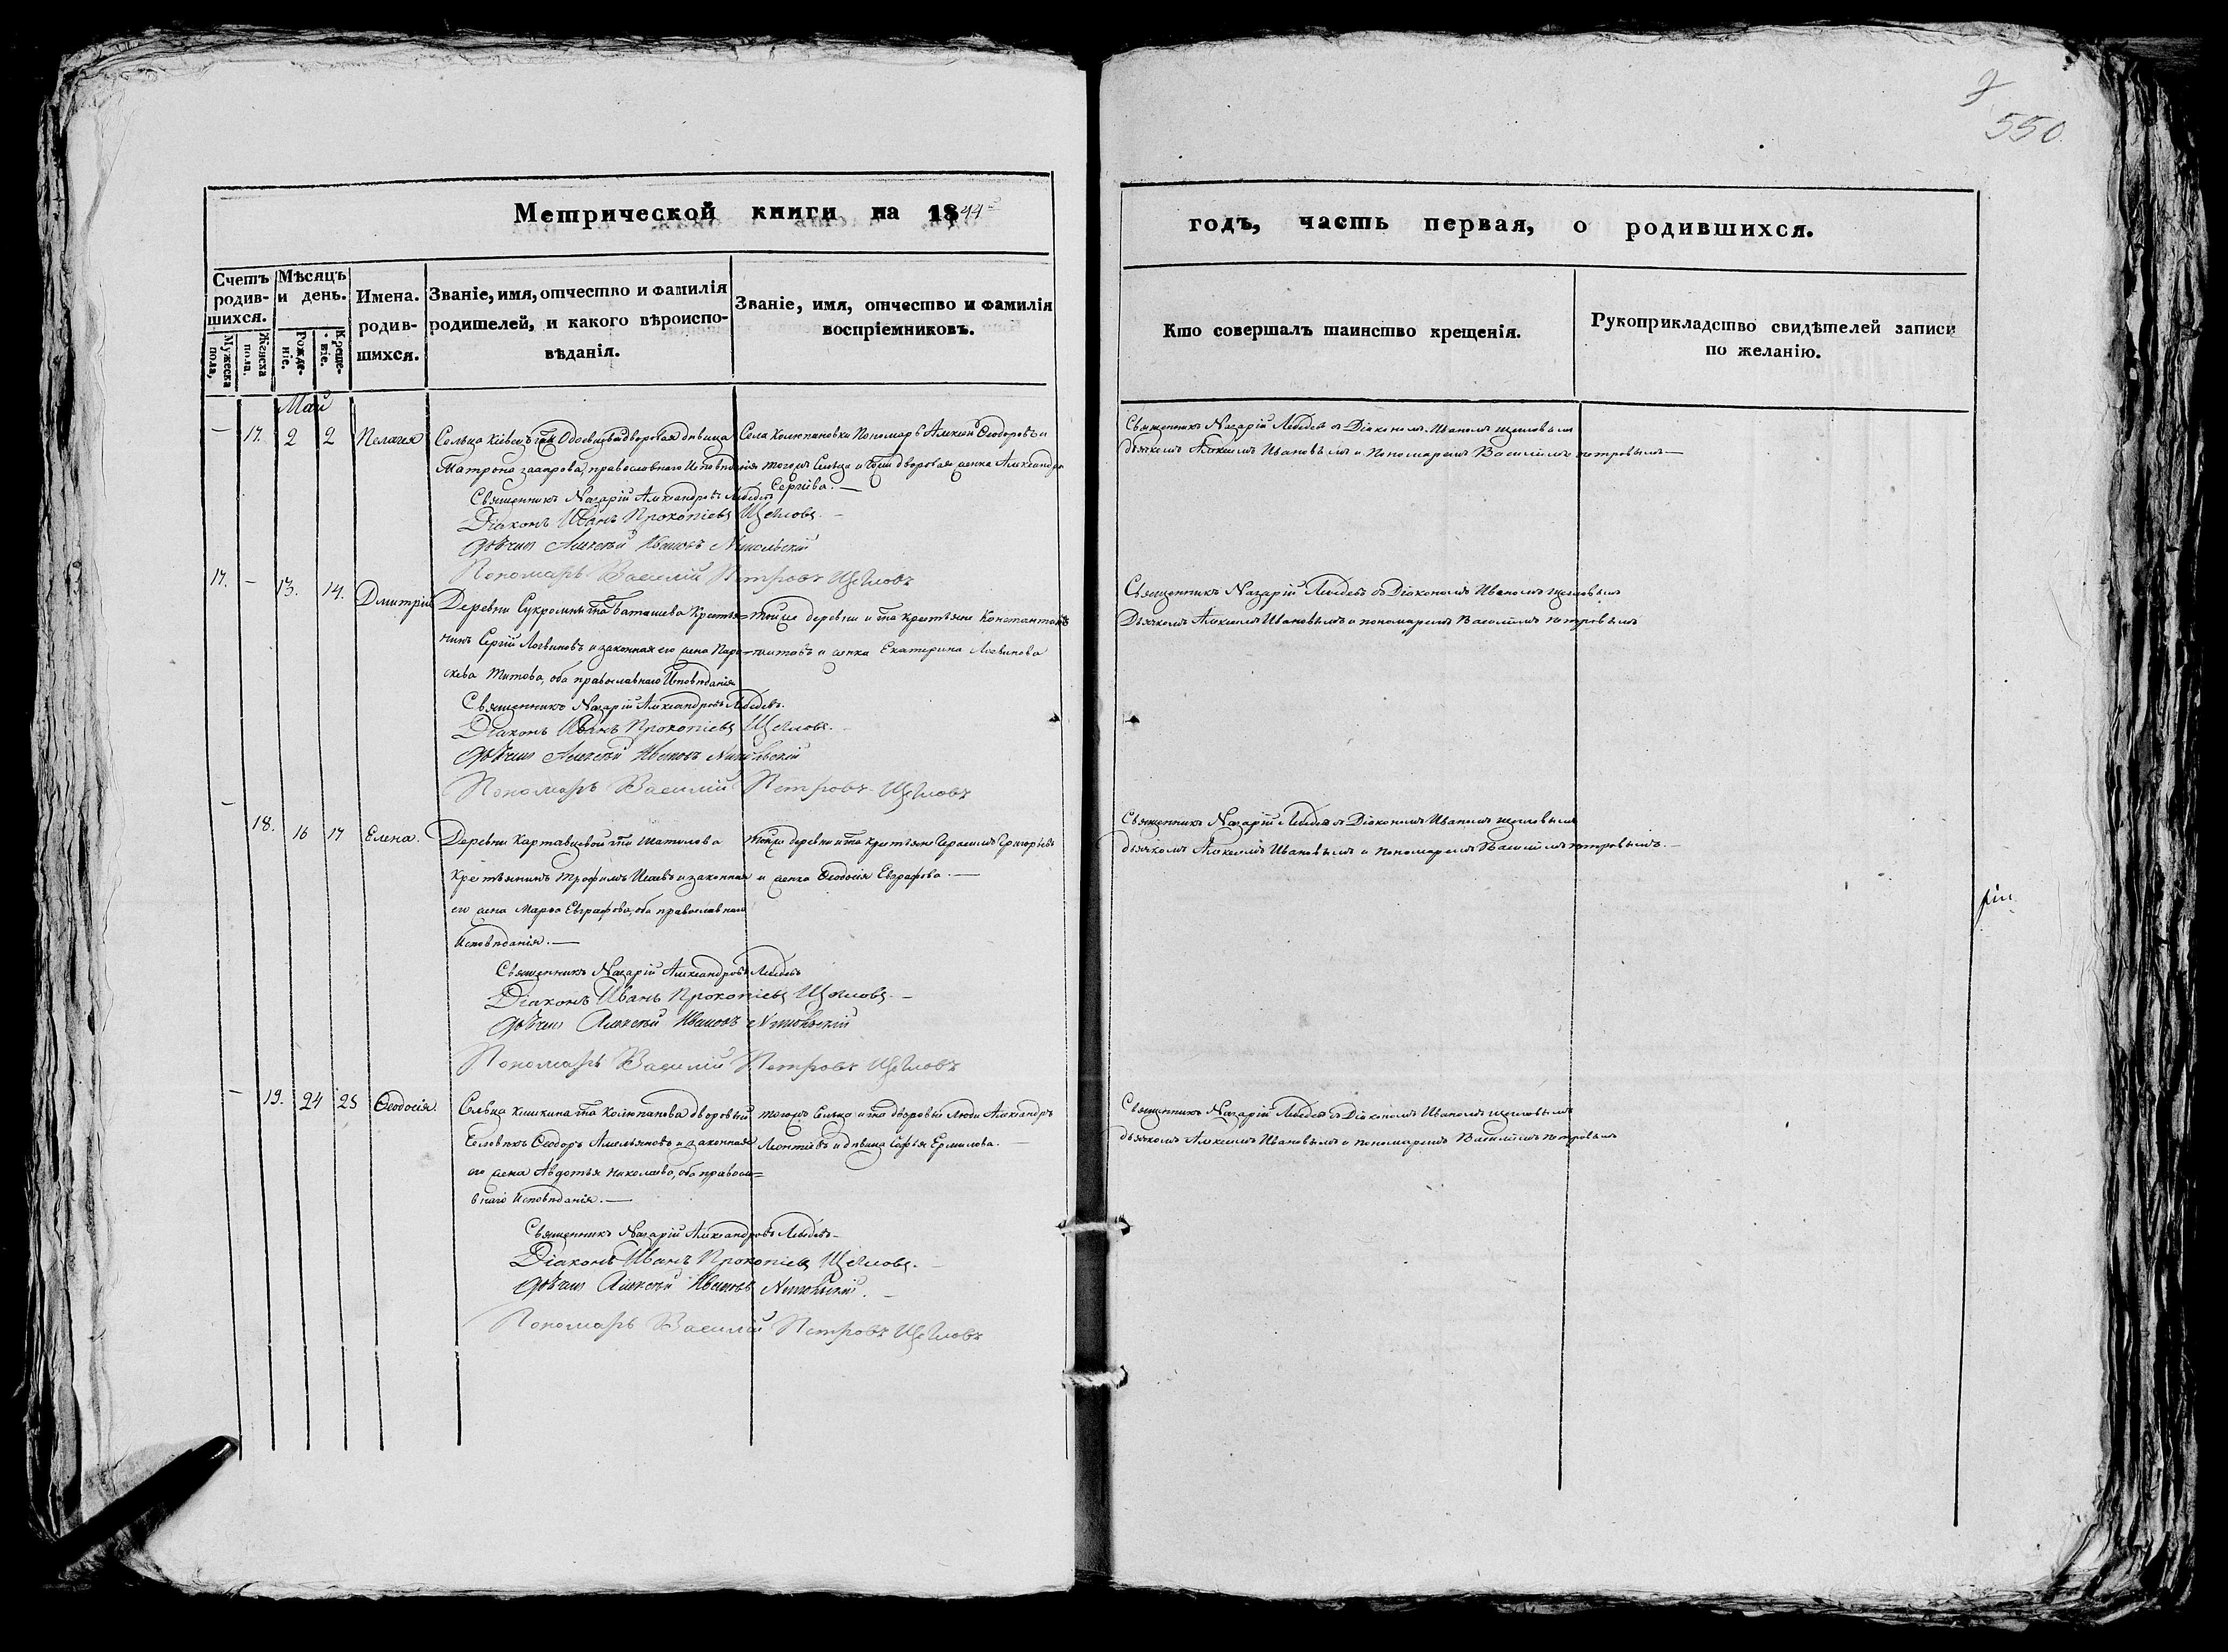 550
Метрической книги на 1844
годъ, часть первая, о родившихся.
Счетъ родив-шихся.
Мужеска пола,
Женска пола.
Мѣсяцъ и день.
Рожде-ніе.
Креще-ніе.
Имена. родив-шихся.
Званіе, имя, отчество и фамилія
родителей, и какого вѣроиспо-
вѣданія.
Званіе, имя, отчество и фамилія
воспріемниковъ.
Кто совершалъ таинство крещенія.
Рукоприкладство свидѣтелей записи
по желанію.
Май
— 17. 2 2 Пелагея
Сельца дворовая дѣвица
Матрона православнаго Исповѣданія
Села Колюпановки Пономарь Алексій Ѳеодоровъ и
тогожъ Сельца и дворовая женка Александра
Сергіева. —
Священникъ Назарій Лебедевъ съ Діакономъ Иваномъ Щегловымъ
дьячкомъ Алексѣемъ Ивановымъ и Пономаремъ Василіемъ Петровымъ —
Священникъ Назарій Александровъ Лебедевъ
Діаконъ Иванъ Прокопіевъ Щегловъ. —
Дьячекъ Алексѣй Ивановъ Никольскій
Пономарь Василій Петровъ Щегловъ
17. — 13. 14. Дмитрій
Деревни Сукромны гна Баташева Крестья-
нинъ Сергій Логвиновъ и законная его жена Пара-
скева Титова, оба православнаго Исповѣданія
тойже деревни и гна крестьяне Константинъ
Титовъ и женка Екатерина Логвинова
Священникъ Назарій Лебедевъ съ Діакономъ Иваномъ Щегловымъ
Дьячкомъ Алексѣемъ Ивановымъ и пономаремъ Василіемъ Петровымъ
Священникъ Назарій Александровъ Лебедевъ.
Діаконъ Иванъ Прокопіевъ Щегловъ. —
Дьячекъ Алексѣй Ивановъ Никольскій
Пономарь Василій Петровъ Щегловъ
— 18. 16 17 Елена.
Деревни Картавцевой гна Шатилова
Крестьянинъ Трофимъ Исаевъ и законная
его жена Марѳа Евграфова, оба православнаго
Исповѣданія. —
тойже деревни и гна крестьяне Герасимъ Григорьевъ
и женка Ѳеодосія Евграфова. —
Священникъ Назарій Лебедевъ съ Діакономъ Иваномъ Щегловымъ
дьячкомъ Алексѣемъ Ивановымъ и Пономаремъ Василіемъ Петровымъ. —
Священникъ Назарій Александровъ Лебедевъ
Діаконъ Иванъ Прокопіевъ Щегловъ. —
Дьячекъ Алексѣй Ивановъ Никольскій
Пономарь Василій Петровъ Щегловъ
— 19. 24 25 Ѳеодосія.
Сельца Кишкина гна Колюпанова дворовый
Человѣкъ Ѳеодоръ Амельяновъ и законная
его жена Авдотья Николаева, оба правосла-
внаго Исповѣданія. —
тогожъ Сельца и гна дворовые люди Александръ
Леонтіевъ и дѣвица Софья Ермилова. —
Священникъ Назарій Лебедевъ съ Діакономъ Иваномъ Щегловымъ
дьячкомъ Алексѣемъ Ивановымъ и пономаремъ Василіемъ Петровымъ
Священникъ Назарій Александровъ Лебедевъ —
Діаконъ Иванъ Прокопіевъ Щегловъ. —
Дьячекъ Алексѣй Ивановъ Никольскій. —
Пономарь Василій Петровъ Щегловъ